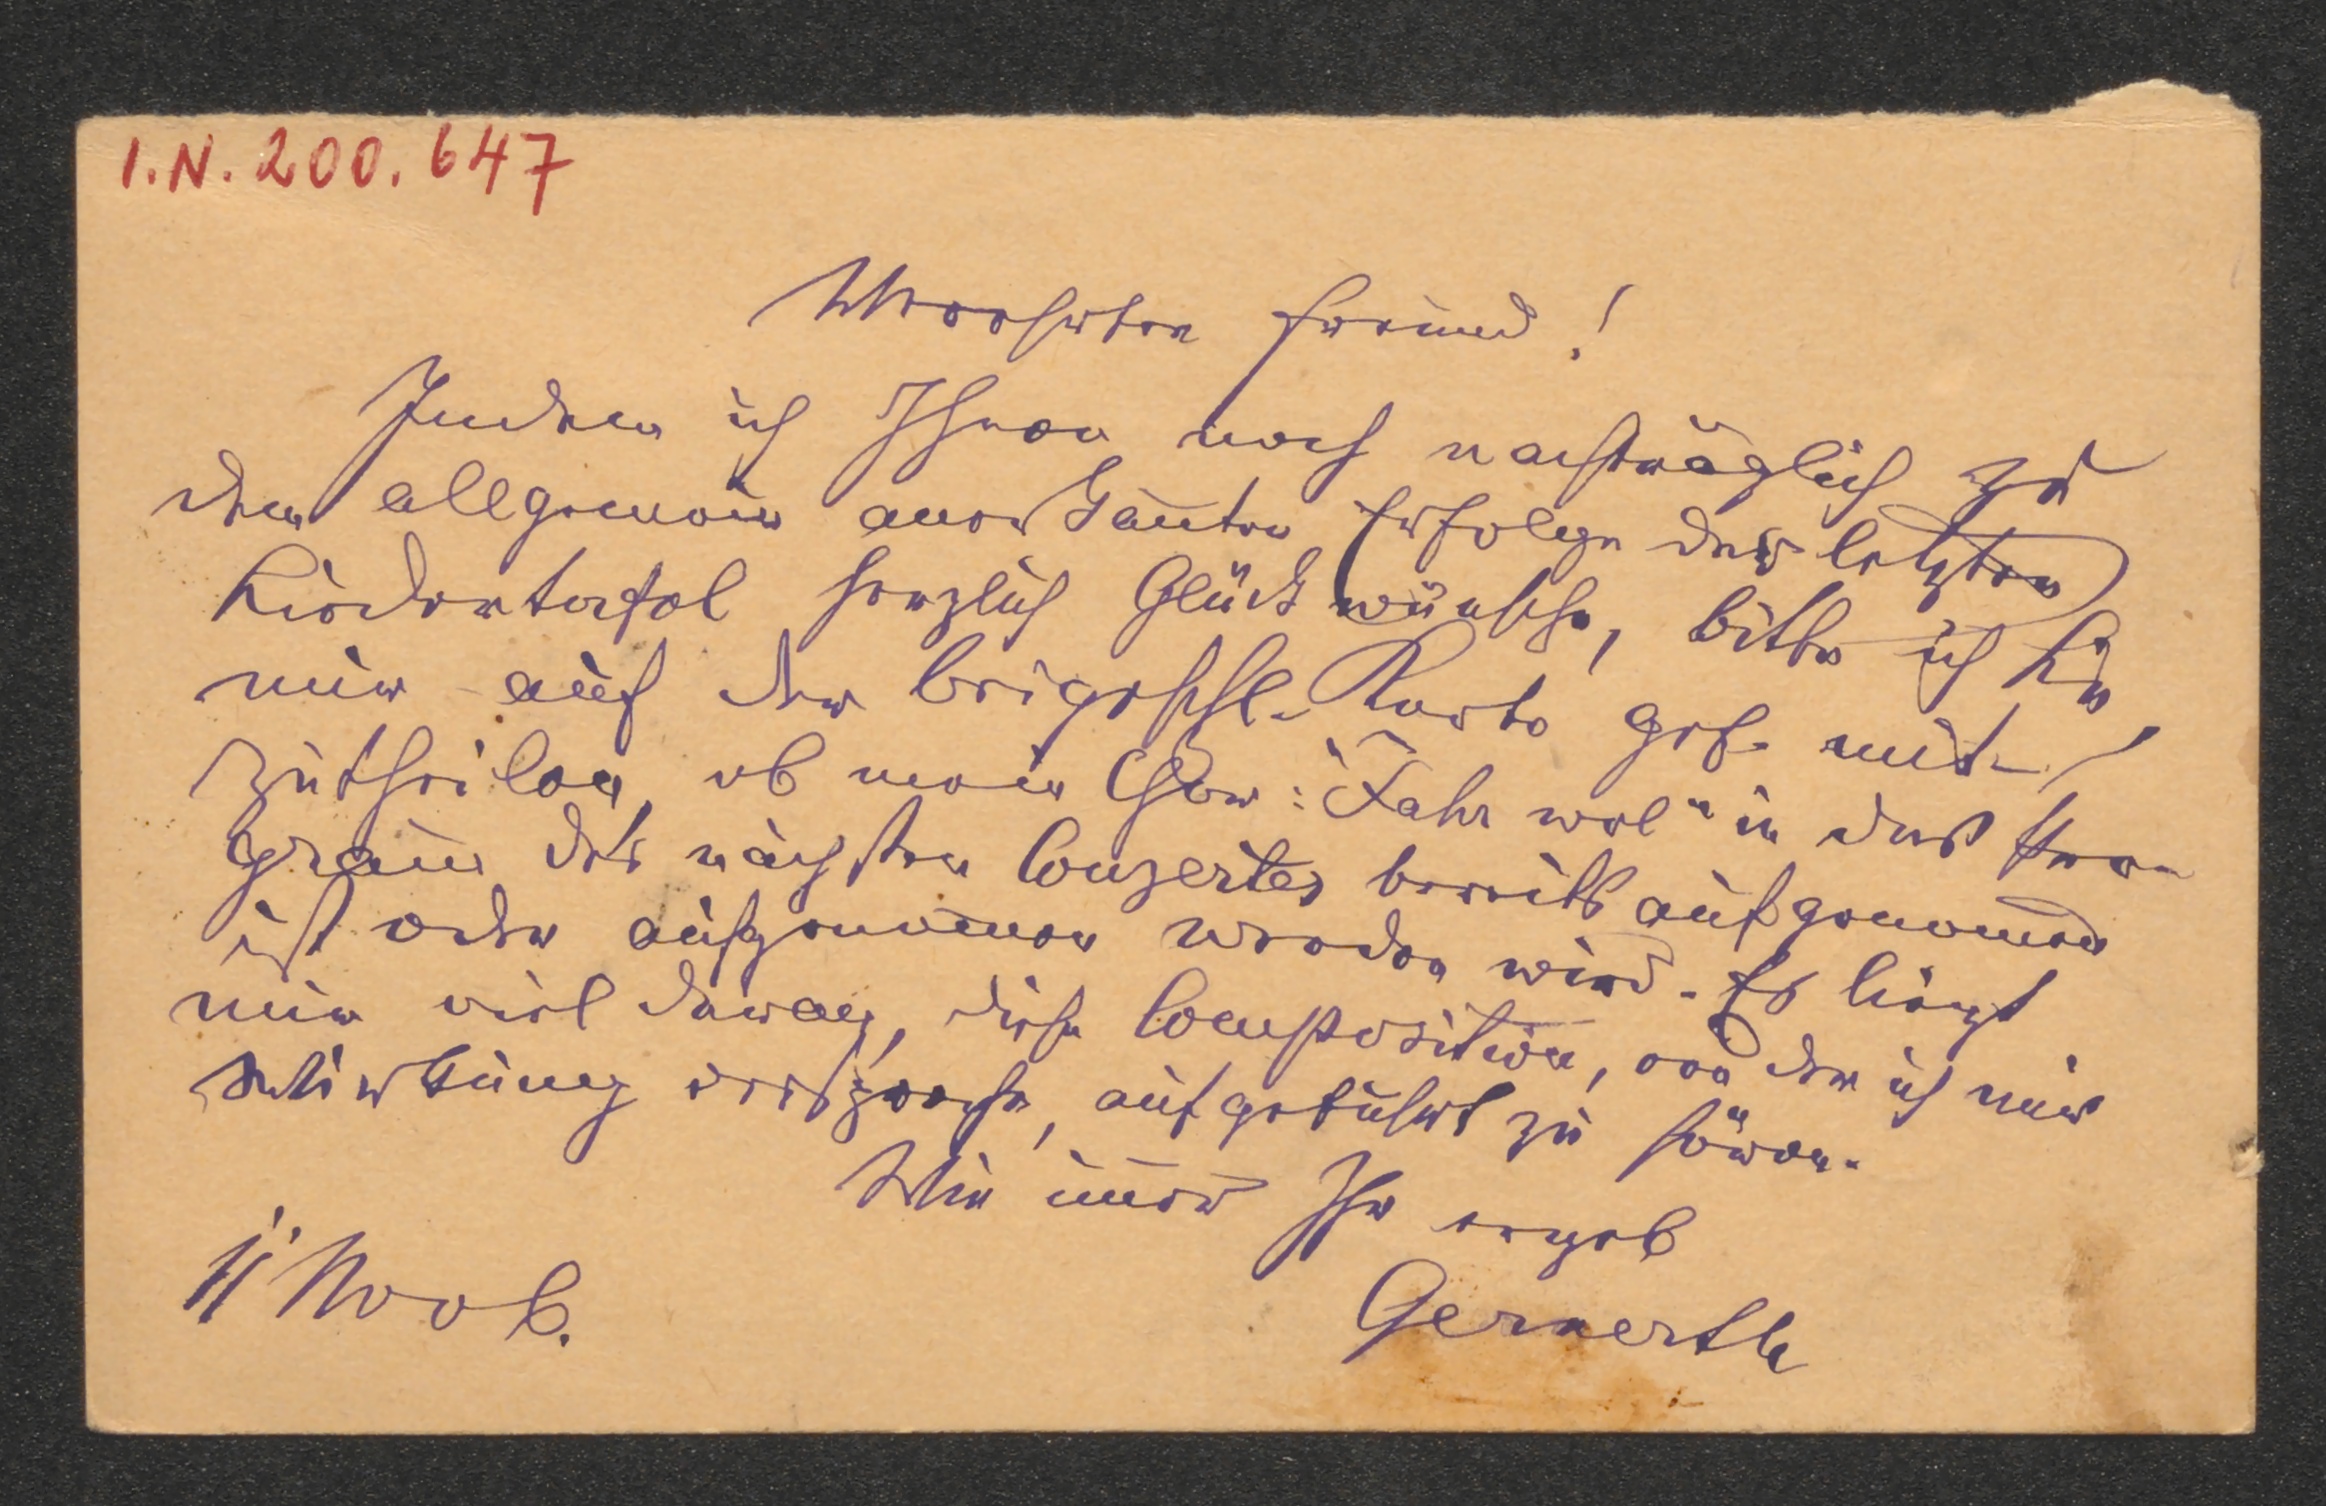 I.N. 200.647
Verehrter Freund!
Indem ich Ihnen noch nachträglich zu
dem allgemein anerkan̄ten Erfolge der letzten
Liedertafel herzlich Glück wünsche, bitte ich Sie
mir auf der beigeschl. Karte gef. mit-
zutheilen, ob mein Chor: "Fahr wol" in das Pro-
gram̄ des nächsten Conzertes bereits aufgenom̄en
ist oder aufgenom̄en werden wird. Es liegt
mir viel daran, diese Composition, von der ich mir
Wirkung verspreche, aufgeführt zu hören.
Wie im̄er Ihr ergeb
Gernerth
11 Novb.